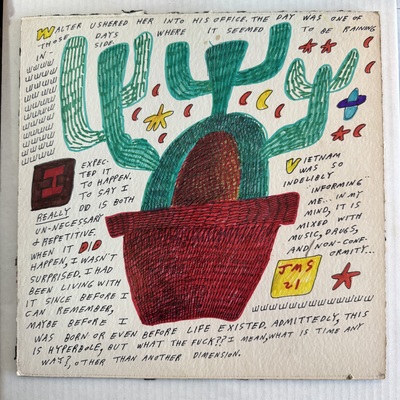 WALTER USHERED HER INTO HIS OFFICE. THE DAY WAS ONE OF
THOSE DAYS WHERE IT SEEMED TO BE RAINING
IN-SIDE
I EXPEC-
TED IT
TO HAPPEN.
TO SAY I
REALLY DID IS BOTH
UN-NECESSARY
& REPETITIVE.
WHEN IT DID
HAPPEN, I WASN'T
SURPRISED. I HAD
BEEN LIVING WITH
IT SINCE BEFORE I
CAN REMEMBER,
MAYBE BEFORE I
WAS BORN OR EVEN BEFORE LIFE EXISTED. ADMITTEDLY, THIS
IS HYPERBOLE, BUT WHAT THE FUCK?? I MEAN, WHAT IS TIME ANY
WAY?, OTHER THAN ANOTHER DIMENSION.
VIETNAM
WAS SO
INDELIBLY
INFORMING
ME... IN MY
MIND, IT IS
MIXED WITH
MUSIC, DRUGS,
AND/NON-CONF-
ORMITY...
JMS
21